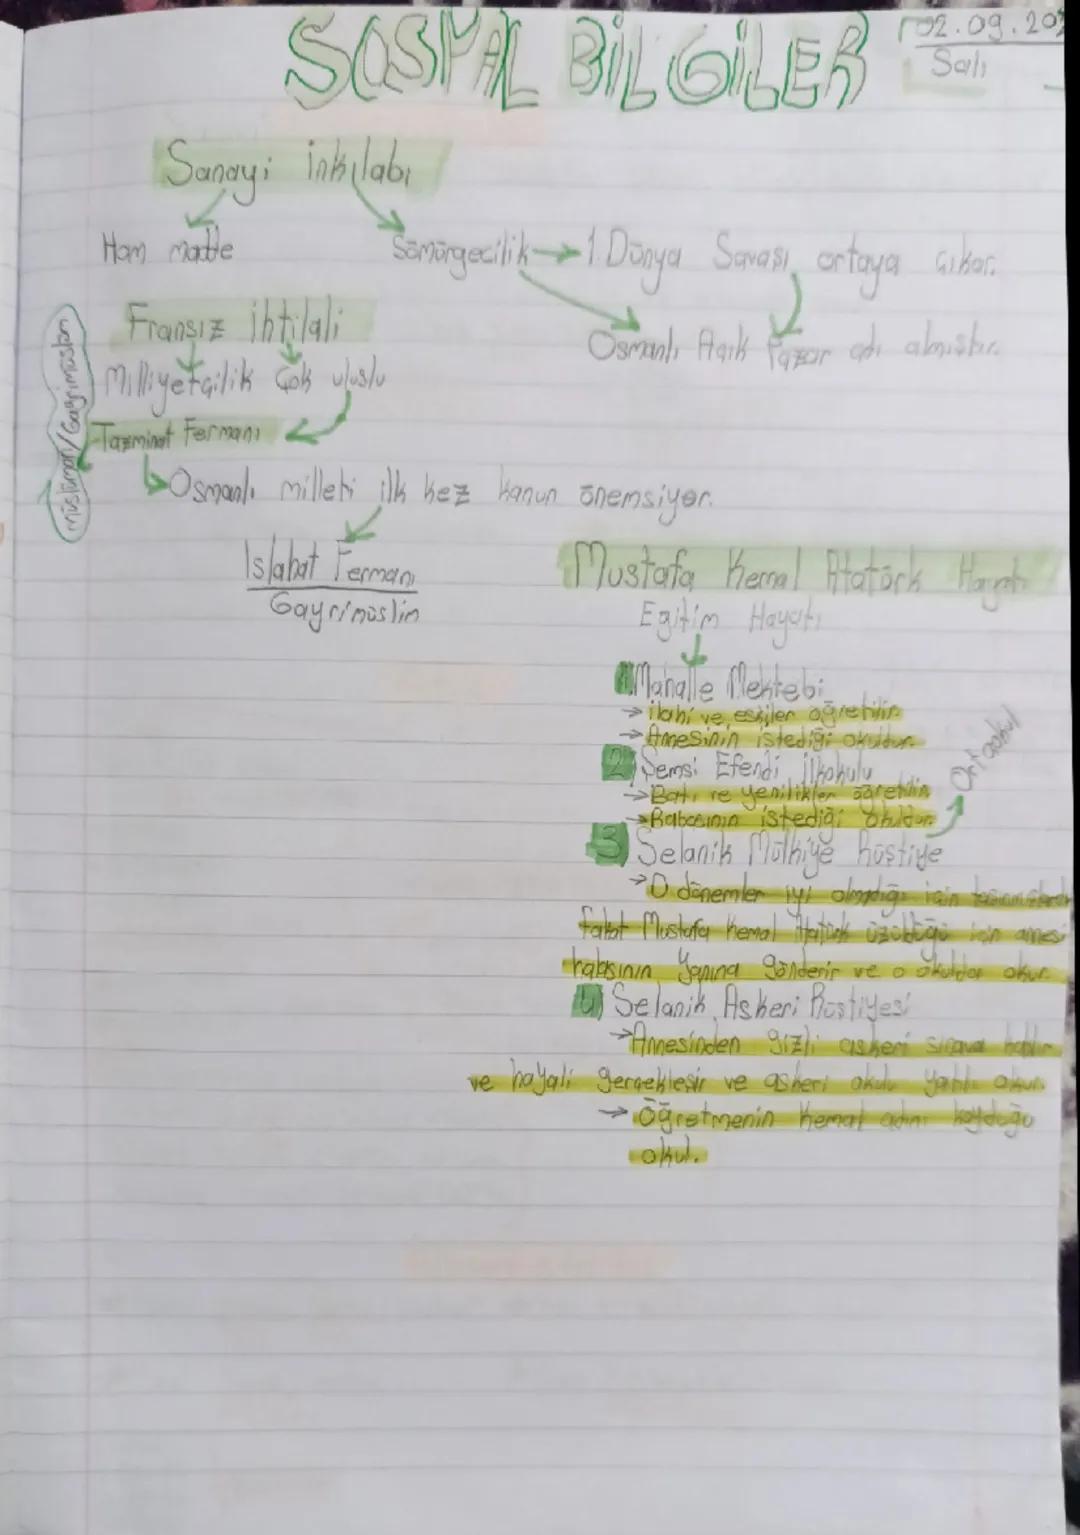 SOSYAL BİLGİLER
02.09.202
Salı
Sanayi inkılabı
Ham madde
Sömürgecilik → 1. Dünya Savaşı ortaya çıkar.
Osmanlı Açık Pazar adı almıştır.
Fransız ihtilali
Milliyetçilik Çok uluslu
Müslüman/Gayrimüslim
Tazminat Fermanı
Osmanlı milleti ilk kez kanun önemsiyor.
Islahat Fermanı
Gayrimüslim
Mustafa Kemal Atatürk Hayatı
Eğitim Hayatı
1. Mahalle Mektebi
→ ilahi ve eskiler öğretilir.
→ Annesinin istediği okuldur.
2) Şemsi Efendi ilkokulu
→ Batı ve yenilikler öğretilir
→ Babasının istediği okuldur.
Ortaokul
3) Selanik Mülkiye Rüştiye
→ O dönemler iyi olmadığı için
fakat Mustafa Kemal Atatürk üzüldüğü için annesi
Yanına gönderir ve o okur.
4) Selanik Askeri Rüştiyesi
→ Annesinden gizli askeri sınava
ve hayali gerçekleşir ve askeri okulu yatılı okur.
→ Öğretmenin Kemal adını koyduğu
okul.